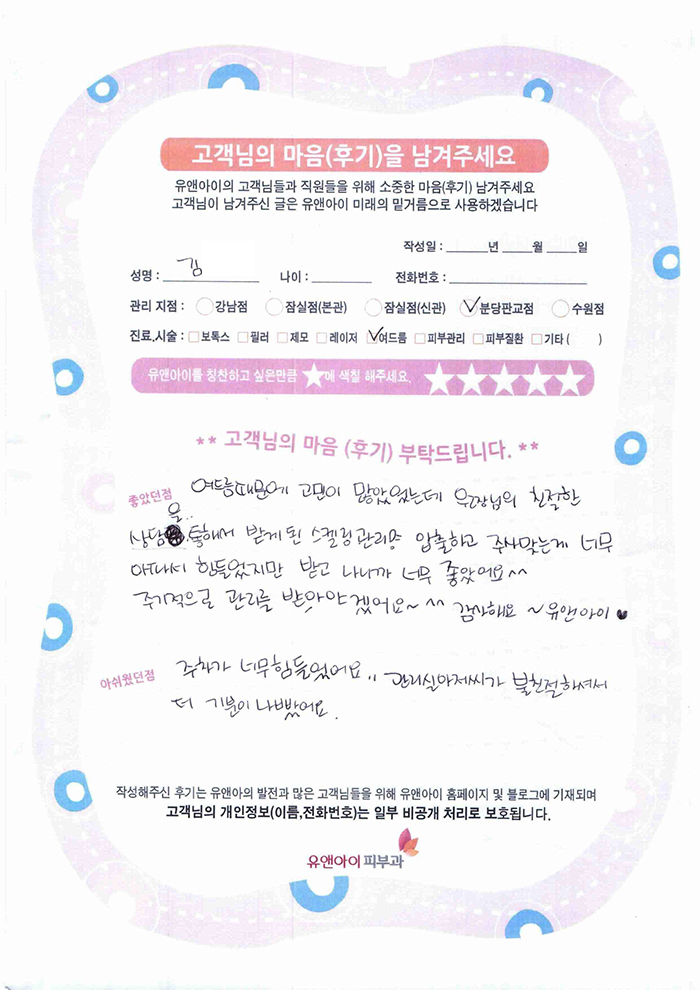 고객님의 마음(후기)을 남겨주세요
유앤아이의 고객님들과 직원들을 위해 소중한 마음(후기) 남겨주세요
고객님이 남겨주신 글은 유앤아이 미래의 밑거름으로 사용하겠습니다
작성일 : 년 월 일
성명 : 김 나이 : 전화번호 :
관리 지점 : 강남점 잠실점(본관) 잠실점(신관) 분당판교점 수원점
진료,시술 : 보톡스 필러 제모 레이저 여드름 피부관리 피부질환 기타 ( )
유앤아이를 칭찬하고 싶은만큼 ★에 색칠 해주세요. ★★★★★
** 고객님의 마음 (후기) 부탁드립니다. **
좋았던점 여드름때문에 고민이 많았었는데 원장님의 친절한
상담을.. 통해서 받게된 스켈링관리랑 압출하고 주사맞는게 너무
아파서 힘들었지만 받고 나니까 너무 좋았어요^^
주기적으로 관리를 받아야겠어요~^^ 감사해요 ~유앤아이
아쉬웠던점 주차가 너무힘들었어요.. 관리실아저씨가 불친절하셔서
더 기분이 나빴어요.
작성해주신 후기는 유앤아의 발전과 많은 고객님들을 위해 유앤아이 홈페이지 및 블로그에 기재되며
고객님의 개인정보(이름,전화번호)는 일부 비공개 처리로 보호됩니다.
유앤아이피부과